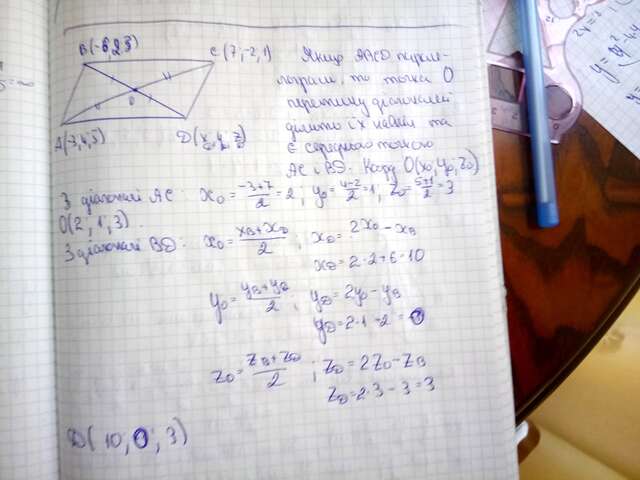 B(-6,2,3)
C(7,-2,1)
A(-3,4,5)
D(x, y, z)
O
Якщо ABCD парале-
лограм, то точка O
перетину діагоналей
ділить їх навпіл та
є серединою
AC і BD. O(x₀, y₀, z₀)
З діагоналі AC: x₀ = (-3+7)/2 = 2; y₀ = (4-2)/2 = 1; z₀ = (5+1)/2 = 3
O(2; 1; 3).
З діагоналі BD: x₀ = (x_B + x_D)/2; x_D = 2x₀ - x_B
x_D = 2·2+6=10
y₀ = (y_B + y_D)/2; y_D = 2y₀ - y_B
y_D = 2·1-2 = 0
z₀ = (z_B + z_D)/2; z_D = 2z₀ - z_B
z_D = 2·3-3=3
D(10; 0; 3)